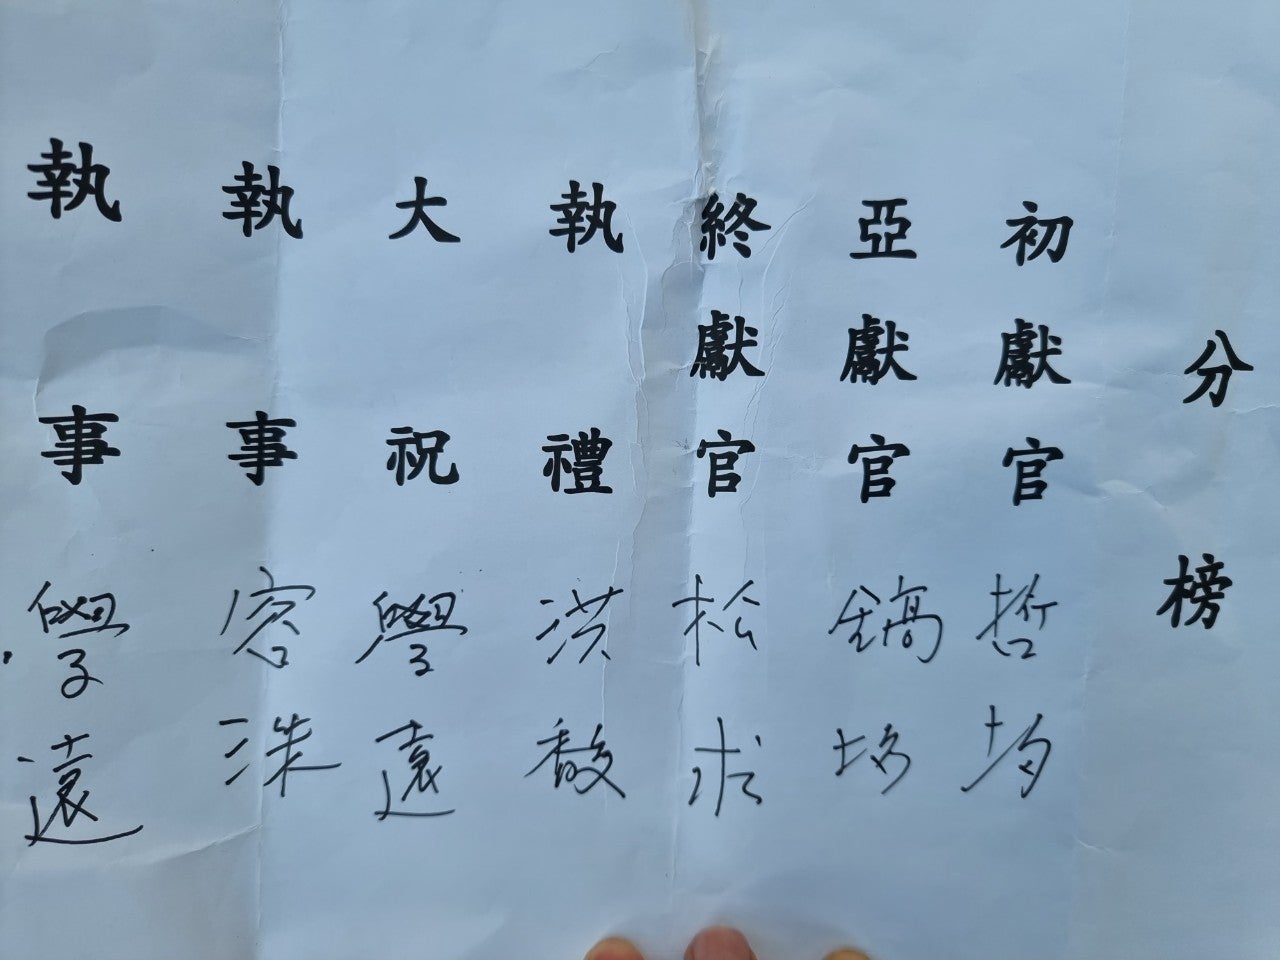 分榜
初獻官 哲均
亞獻官 鎬
終獻官 松求
執禮 洪馥
大祝 學遠
執事 容洙
執事 學遠